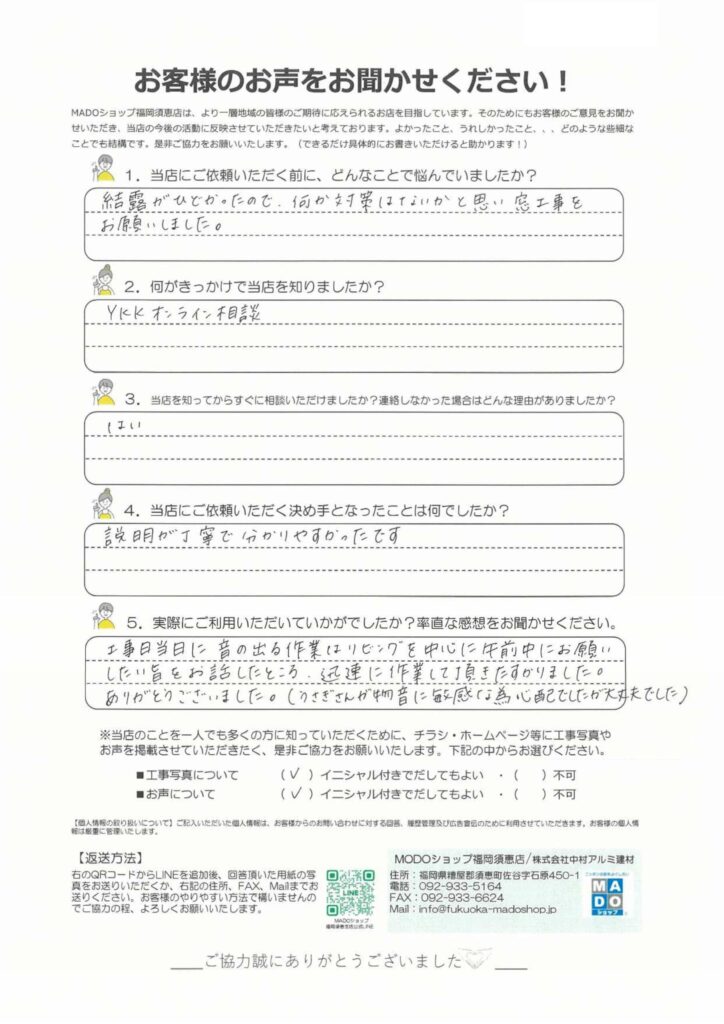 お客様のお声をお聞かせください！
MADOショップ福岡須恵店は、より一層地域の皆様のご期待に応えられるお店を目指しています。そのためにもお客様のご意見をお聞か
せいただき、当店の今後の活動に反映させていただきたいと考えております。よかったこと、うれしかったこと、、、どのような些細な
ことでも結構です。是非ご協力をお願いいたします。（できるだけ具体的にお書きいただけると助かります！）
1．当店にご依頼いただく前に、どんなことで悩んでいましたか？
結露がひどかったので、何か対策はないかと思い窓工事を
お願いしました。
2．何がきっかけで当店を知りましたか？
YKKオンライン相談
3．当店を知ってからすぐに相談いただけましたか？連絡しなかった場合はどんな理由がありましたか？
はい
4．当店にご依頼いただく決め手となったことは何でしたか？
説明が丁寧で分かりやすかったです
5．実際にご利用いただいていかがでしたか？率直な感想をお聞かせください。
工事日当日に音の出る作業はリビングを中心に午前中にお願い
したい旨をお話したところ、迅速に作業して頂きたすかりました。
ありがとうございました。（うさぎさんが物音に敏感な為心配でしたが大丈夫でした）
※当店のことを一人でも多くの方に知っていただくために、チラシ・ホームページ等に工事写真や
お声を掲載させていただきたく、是非ご協力をお願いいたします。下記の中からお選びください。
■工事写真について （✓）イニシャル付きでだしてもよい ・（ ）不可
■お声について （✓）イニシャル付きでだしてもよい ・（ ）不可
【個人情報の取り扱いについて】ご記入いただいた個人情報は、お客様からのお問い合わせに対する回答、履歴管理及び広告宣伝のために利用させていただきます。お客様の個人情
報は厳重に管理いたします。
【返送方法】
右のQRコードからLINEを追加後、回答頂いた用紙の写
真をお送りいただくか、右記の住所、FAX、Mailまでお
送りください。お客様のやりやすい方法で構いませんの
でご協力の程、よろしくお願いいたします。
MADOショップ
福岡須恵店公式LINE
MODOショップ福岡須恵店/株式会社中村アルミ建材
住所：福岡県糟屋郡須恵町佐谷字石原450-1
電話：092-933-5164
FAX：092-933-6624
Mail：info@fukuoka-madoshop.jp
MADO
ショップ
ご協力誠にありがとうございました